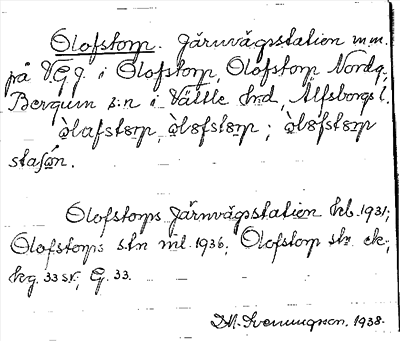 Olofstorp. Järnvägsstation m.m.
på V.G.J. i Olofstorp, Olofstorp Nordg.
Bergum s:n i Vättle hrd, Älfsborgs l.
stasɷn.
Olofstorps Järnvägsstation kb. 1931;
Olofstorps stn ml. 1936; Olofstorp str. ek.;
kg. 33 sr.; G. 33.
D.M. Svenningson. 1938.